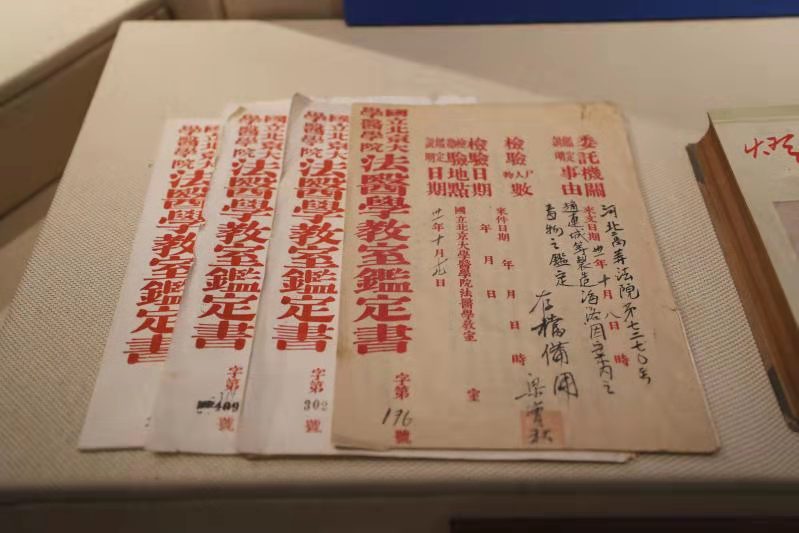 委託機關
河北高等法院第七三七〇号
鑑定說明事由
來文日期 卅一年十月八日 時
趙連成等製造海洛因案內之
毒物之鑑定
存檔備用
檢驗 人尸物 數
來件日期 年 月 日 時
檢驗日期
年 月 日
檢驗地點
國立北京大學醫學院法醫學教室 室
鑑定說明日期
卅一年十月十九日
國立北京大
學醫學院
法醫學教室鑑定書
字第196號
國立北京大
學醫學院
法醫學教室鑑定書
字第302號
國立北京大
學醫學院
法醫學教室鑑定書
字第409號
國立北京大
學醫學院
法醫學教室鑑定書
字第 號